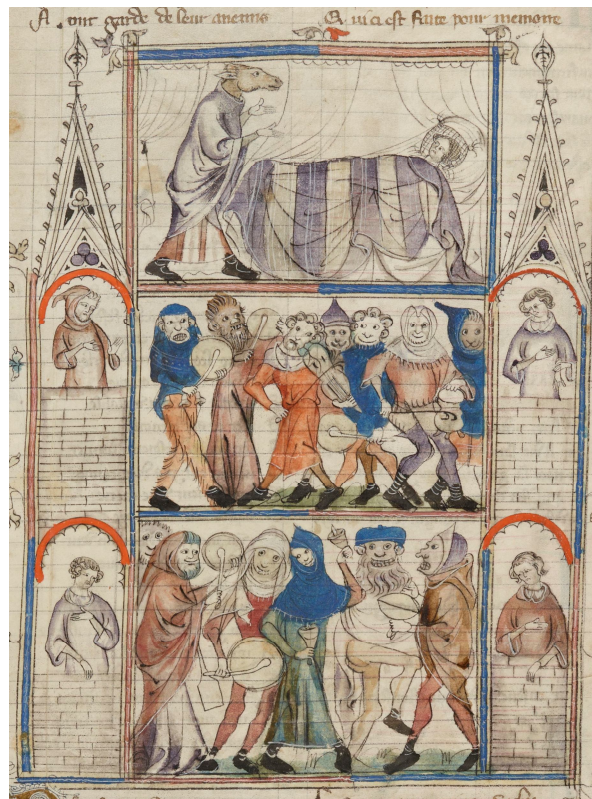 N ont garde de leur anemis Q ui ci est faite pour memoire